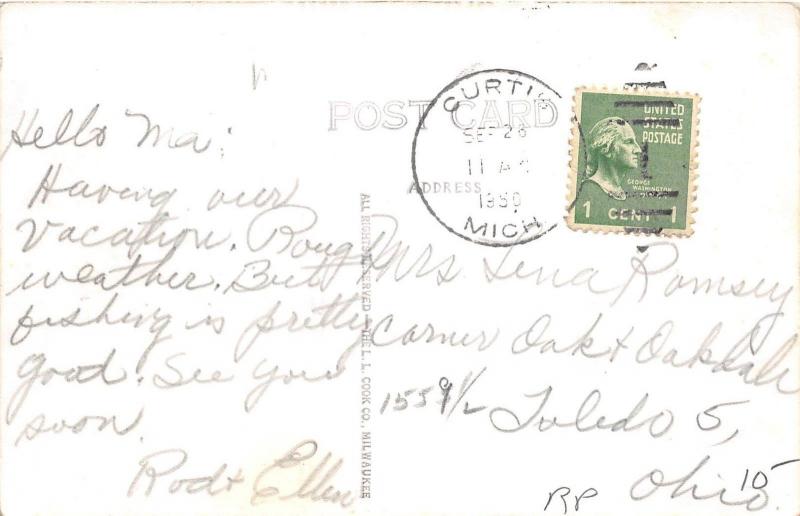 POST CARD
ADDRESS
CURTIS
SEP 28
11 AM
1950
MICH.
UNITED
STATES
POSTAGE
GEORGE
WASHINGTON
1 CENT 1
Hello Ma;
Having our
vacation. Roug
weather. But
fishing is pretty
good. See you
soon.
Rod & Ellen
ALL RIGHTS RESERVED - THE L. L. COOK CO., MILWAUKEE
Mrs. Lena Romsey
corner Oak & Oakdale
1559 1/2 Toledo 5,
Ohio.
10
RP